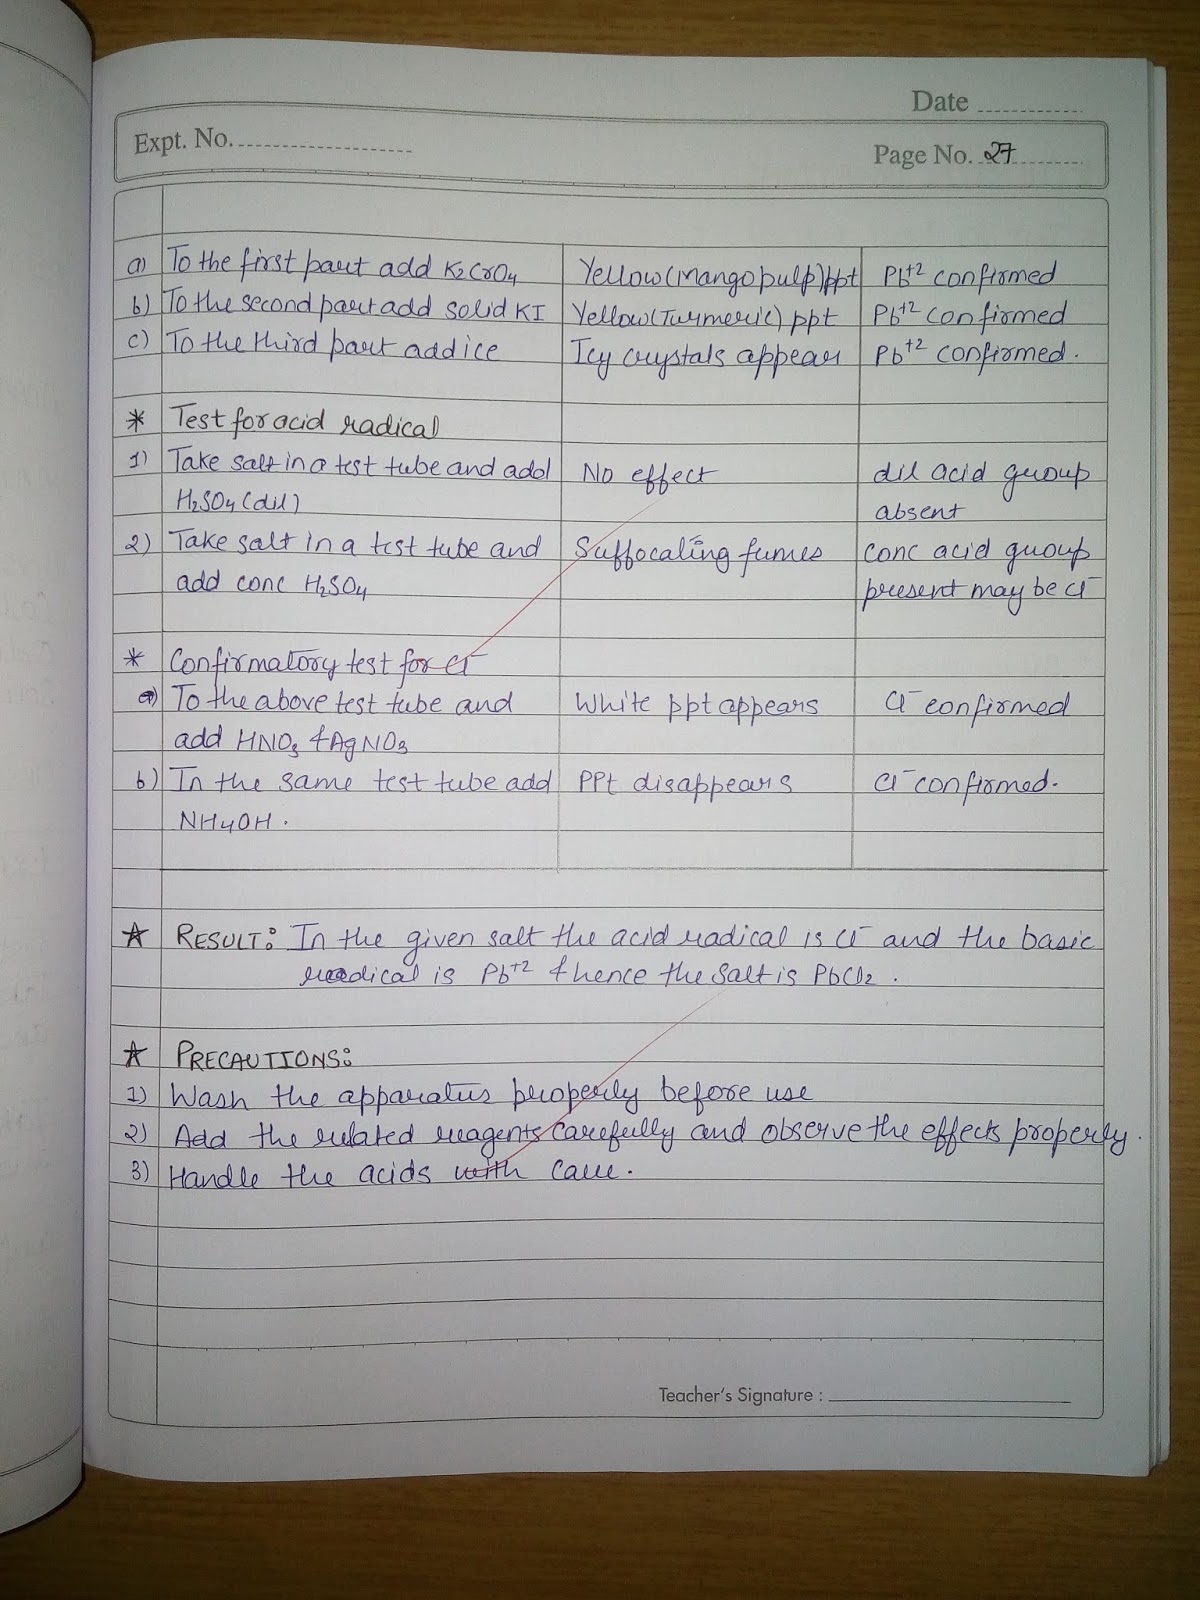 Date
Expt. No.
Page No. 27
a) To the first part add K2CrO4 Yellow(Mango pulp)ppt Pb+2 confirmed
b) To the second part add solid KI Yellow(Turmeric) ppt Pb+2 confirmed
c) To the third part add ice Icy crystals appear Pb+2 confirmed.
* Test for acid radical
1) Take salt in a test tube and add No effect dil acid group
H2SO4(dil) absent
2) Take salt in a test tube and Suffocating fumes conc acid group
add conc H2SO4 present may be Cl-
* Confirmatory test for Cl-
a) To the above test tube and White ppt appears Cl- confirmed
add HNO3 & AgNO3
b) In the same test tube add PPt disappears Cl- confirmed.
NH4OH.
★ RESULT: In the given salt the acid radical is Cl- and the basic
radical is Pb+2 & hence the salt is PbCl2.
★ PRECAUTIONS:
1) Wash the apparatus properly before use
2) Add the related reagents carefully and observe the effects properly.
3) Handle the acids with care.
Teacher's Signature :